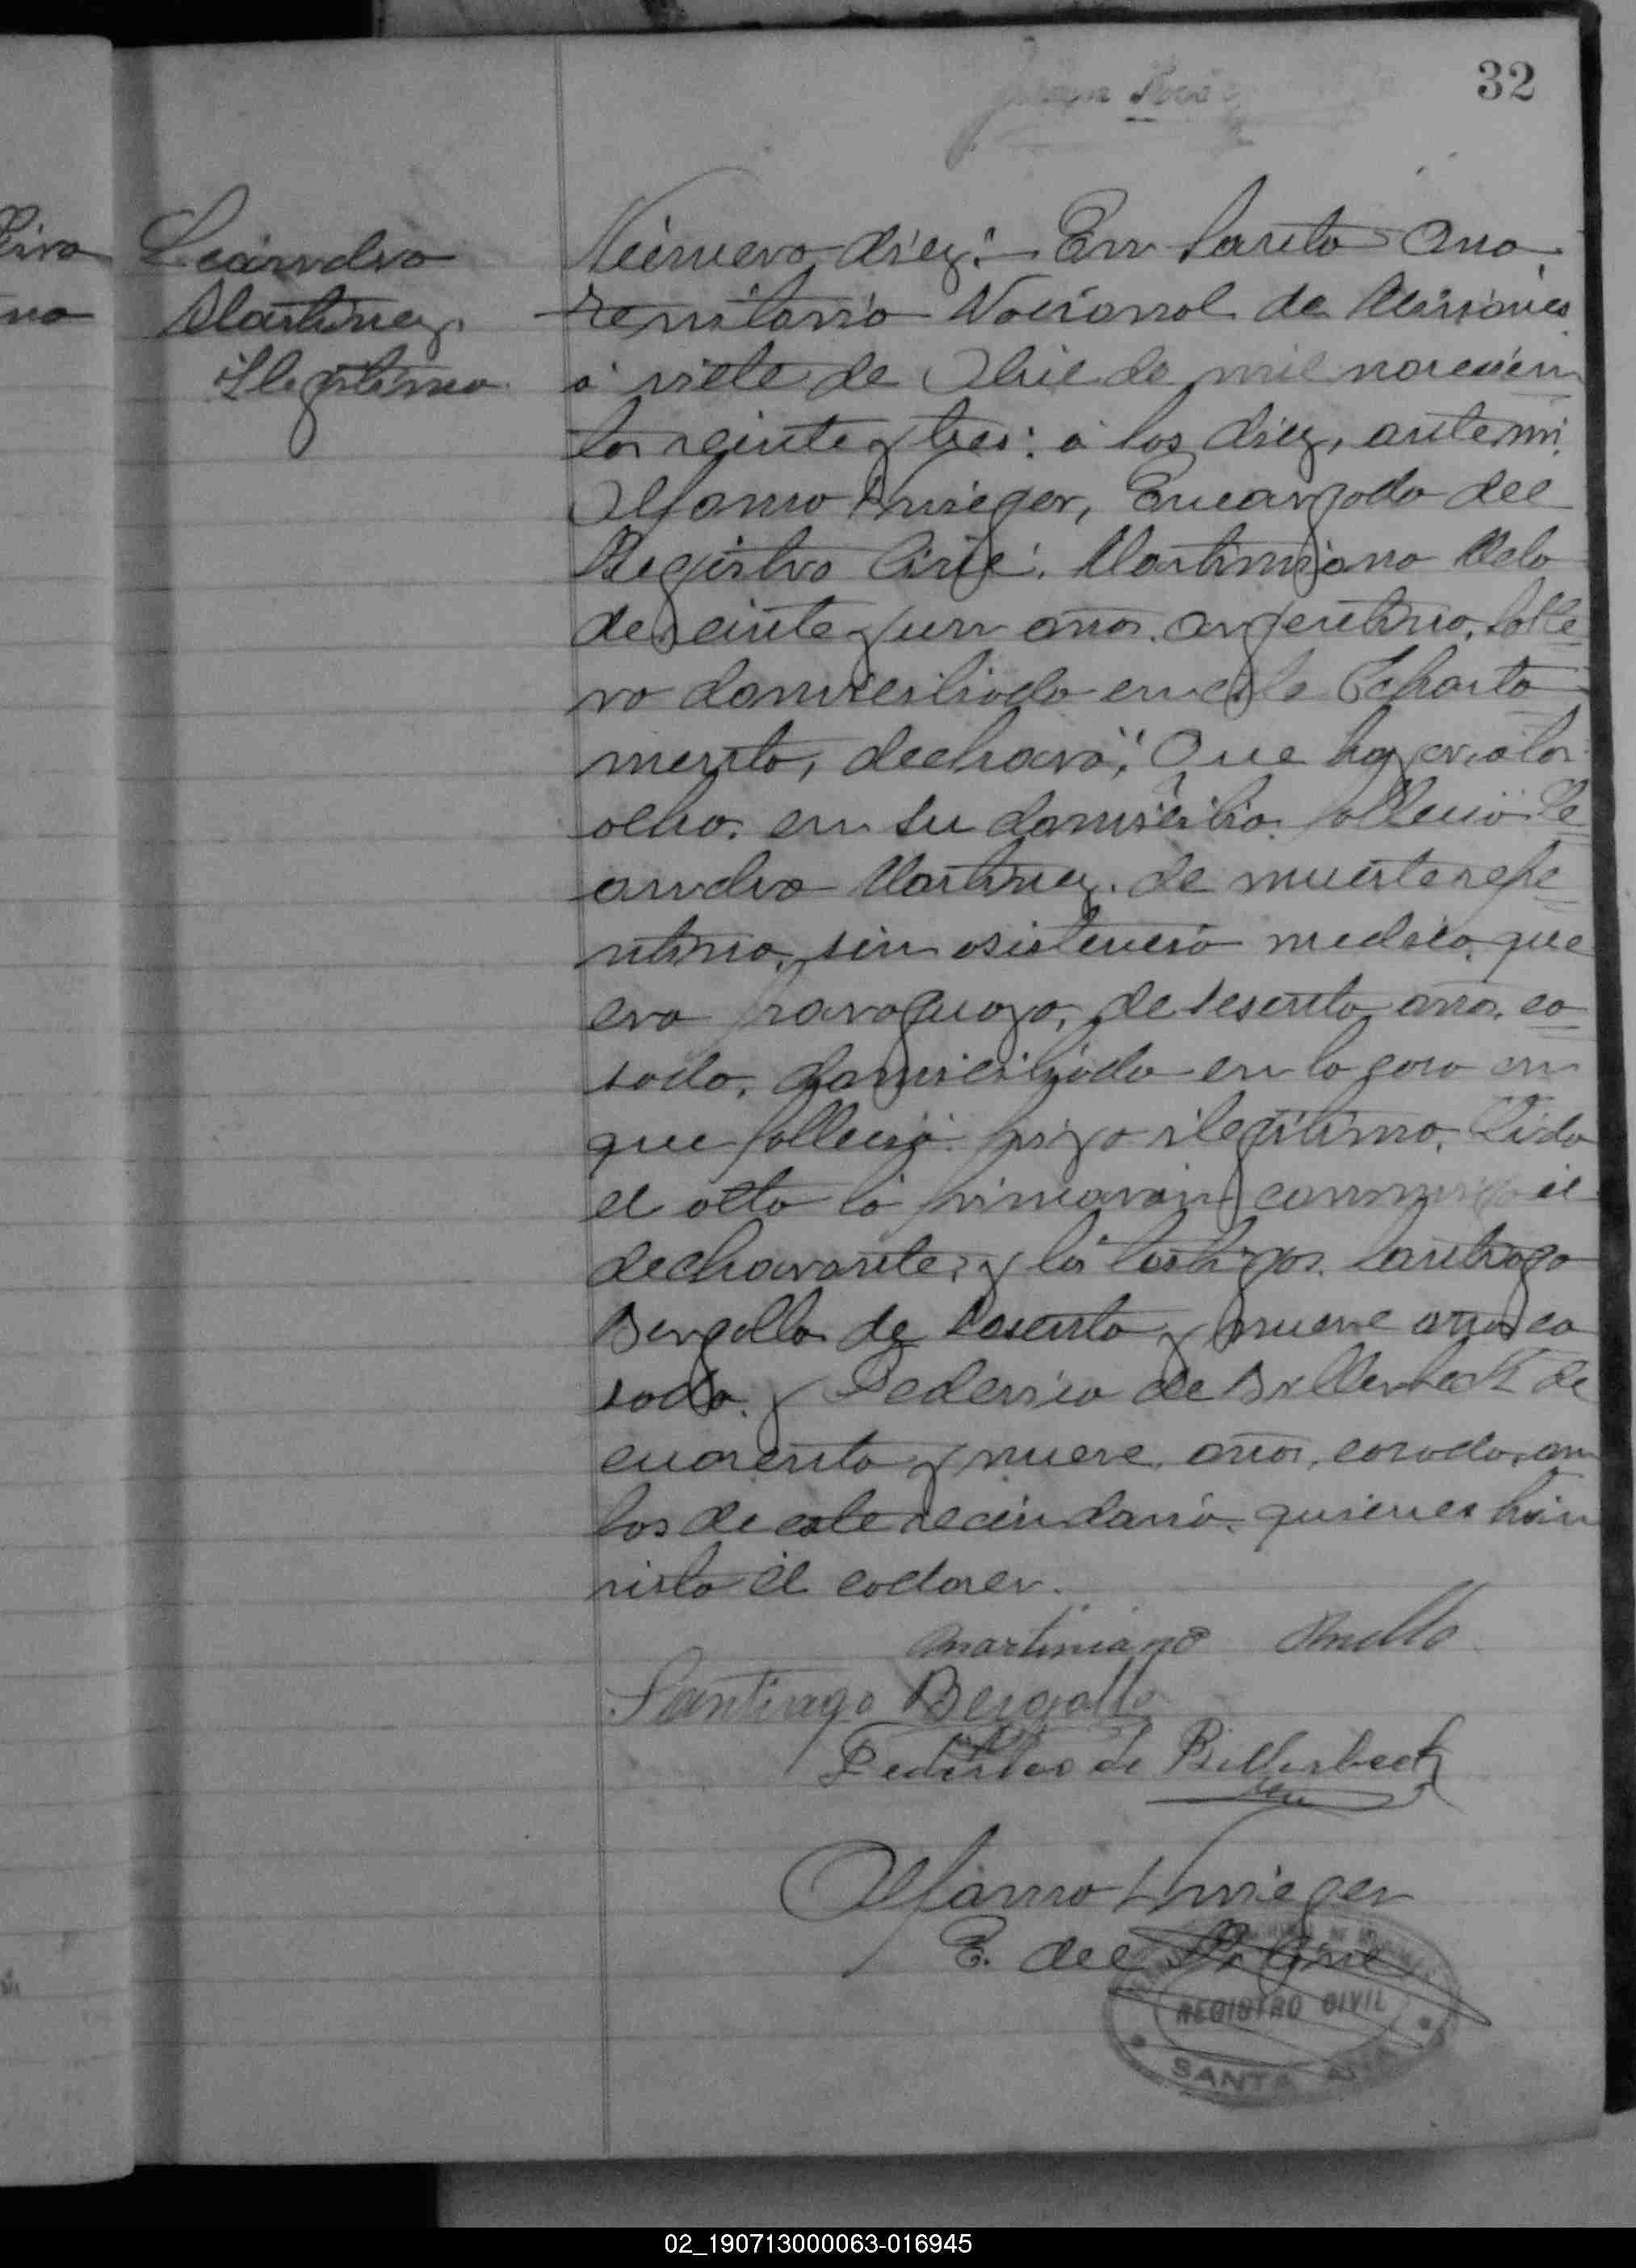 32
Leandro
Martinez.
Ilegitimo.
Número diez: En Santa Ana,
Territorio Nacional de Misiones
á siete de Abril de mil novecien
tos veinte y tres: á las diez, ante mi,
Krieger, Encargado del
Registro Civil, Martimiano Melo
de veinte y un años, argentino, solte
ro domiciliado en este Departa
mento, declaró: Que hoy, á las
ocho, en su domicilio, falleció Le
andro Martinez, de muerte repe
ntina, sin asistencia medica, que
era paraguayo, de sesenta años, ca
sado, domiciliado en la casa en
que falleció, hijo ilegitimo. Leida
el acta la firmaron conmigo el
declarante, y los testigos, Santiago
Bergallo de sesenta y nueve años ca
sado, y Federico de Billerbeck de
cuarenta y nueve años, casado, am
bos de este vecindario, quienes han
visto el cadaver.
Martiniano Mello
Santiago Bergallo
Federico de Billerbeck
Krieger
E. del R. Civil
REGISTRO CIVIL
SANTA ANA
02_190713000063-016945